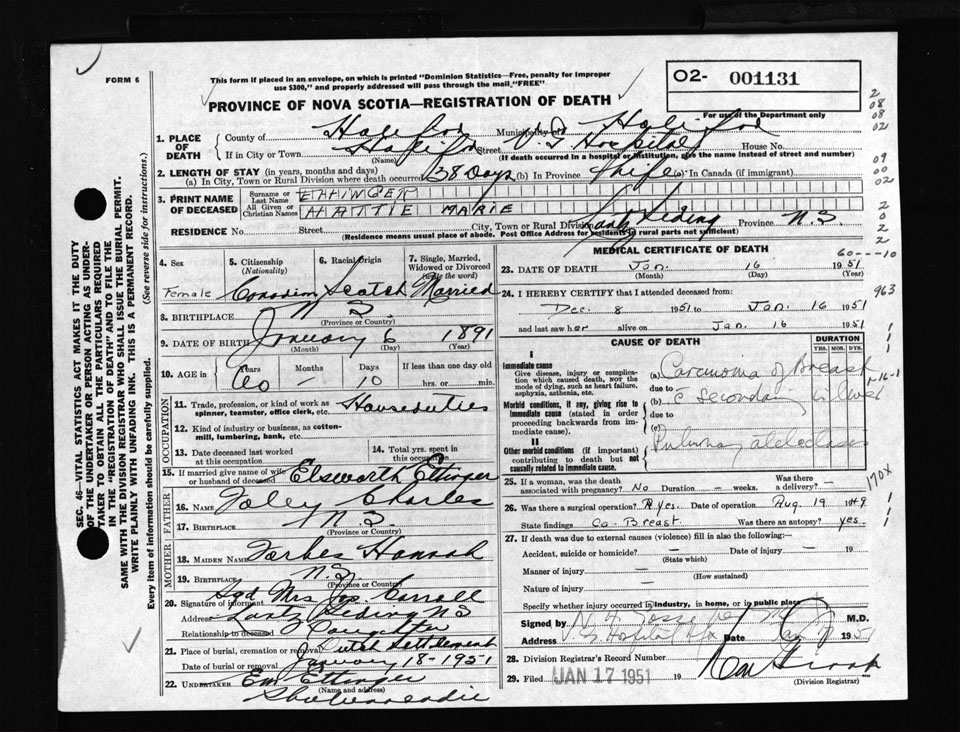 FORM 6
This form if placed in an envelope, on which is printed "Dominion Statistics—Free, penalty for improper
use $300," and properly addressed will pass through the mail "FREE"
O2- 001131
For use of the Department only
PROVINCE OF NOVA SCOTIA—REGISTRATION OF DEATH
1. PLACE OF DEATH County of Halifax Municipality Halifax
If in City or Town Halifax (Name) Street V. G. Hospital House No.
(If death occurred in a hospital or institution, give the name instead of street and number)
2. LENGTH OF STAY (in years, months and days)
(a) In City, Town or Rural Division where death occurred 38 Days (b) In Province Life (c) In Canada (if immigrant)
3. PRINT NAME OF DECEASED Surname or Last Name ETTINGER
All Given or Christian Names HATTIE MARIE
RESIDENCE No. Street City, Town or Rural Division Lantz Siding Province N.S
(Residence means usual place of abode. Post Office Address for residents in rural parts not sufficient)
4. Sex Female
5. Citizenship (Nationality) Canadian
6. Racial Origin Scotch
7. Single, Married, Widowed or Divorced (write the word) Married
8. BIRTHPLACE N S (Province or Country)
9. DATE OF BIRTH January 6 1891
(Month) (Day) (Year)
10. AGE in Years 60 Months — Days 10 If less than one day old
hrs. or min.
OCCUPATION
11. Trade, profession, or kind of work as spinner, teamster, office clerk, etc. Houseduties
12. Kind of industry or business, as cotton-mill, lumbering, bank, etc.
13. Date deceased last worked at this occupation
14. Total yrs. spent in this occupation
15. If married give name of wife or husband of deceased Elsworth Ettinger
FATHER
16. Name Foley Charles
17. BIRTHPLACE N.S. (Province or Country)
MOTHER
18. MAIDEN NAME Forbes Hannah
19. BIRTHPLACE N.S. (Province or Country)
20. Signature of informant Sgd Mrs Jos. Carroll
Address Lantz Siding N S
Relationship to deceased Daughter
21. Place of burial, cremation or removal Dutch Settlement
Date of burial or removal January 18-1951
22. UNDERTAKER Em Ettinger
(Name and address) Shubenacadie
MEDICAL CERTIFICATE OF DEATH
23. DATE OF DEATH Jan. 16 1951
(Month) (Day) (Year)
24. I HEREBY CERTIFY that I attended deceased from:
Dec. 8 1951 to Jan. 16 1951
and last saw her alive on Jan. 16 1951
CAUSE OF DEATH
DURATION
YRS. MOS. DYS.
I
Immediate cause
Give disease, injury or complication which caused death, NOT the mode of dying, such as heart failure, asphyxia, asthenia, etc.
(a) Carcinoma of breast
due to
Morbid conditions, if any, giving rise to immediate cause (stated in order proceeding backwards from immediate cause).
(b) c̄ secondary in liver
due to
(c)
II
Other morbid conditions (if important) contributing to death but not causally related to immediate cause.
Pulmonary atelectasis
25. If a woman, was the death associated with pregnancy? No Duration — weeks. Was there a delivery? —
26. Was there a surgical operation? Yes. Date of operation Aug. 19 1949
State findings Ca. Breast. Was there an autopsy? yes.
27. If death was due to external causes (violence) fill in also the following:
Accident, suicide or homicide? — (State which) Date of injury — 19
Manner of injury — (How sustained)
Nature of injury —
Specify whether injury occurred in industry, in home, or in public place
Signed by M.D.
Address V G Hospital Hfx Date Jan 17 1951
28. Division Registrar's Record Number
29. Filed JAN 17 1951 19
(Division Registrar)
SEC. 46—VITAL STATISTICS ACT MAKES IT THE DUTY
OF THE UNDERTAKER OR PERSON ACTING AS UNDERTAKER TO OBTAIN ALL THE PARTICULARS REQUIRED
IN THE "REGISTRATION OF DEATH" AND TO FILE THE
SAME WITH THE DIVISION REGISTRAR WHO SHALL ISSUE THE BURIAL PERMIT.
WRITE PLAINLY WITH UNFADING INK. THIS IS A PERMANENT RECORD.
Every item of information should be carefully supplied. (See reverse side for instructions.)
2
08
08
02
09
00
02
2
0
2
2
60 — — 10
963
1-16-1
170X